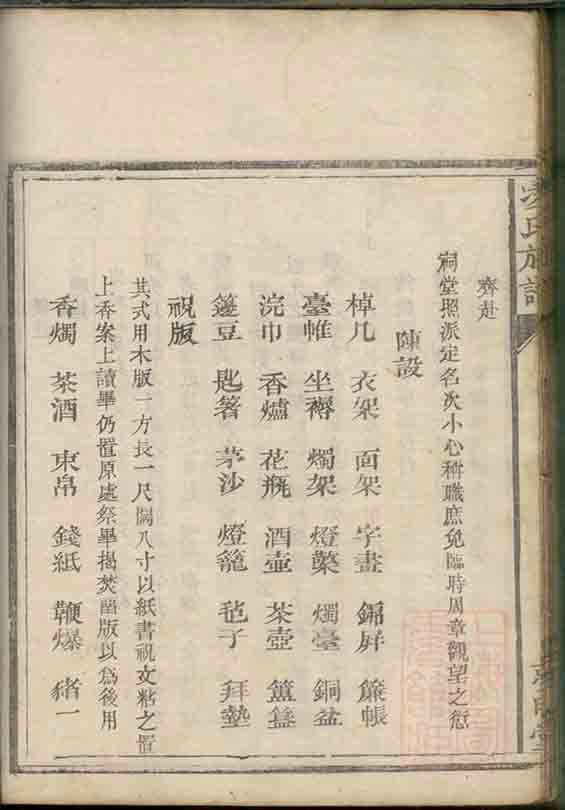 氏族譜
齊赴
祠堂照派定名次小心稱職庶免臨時周章觀望之愆
陳設
棹几 衣架 面架 字畫 錫屏 簾帳
臺帷 坐褥 燭架 燈檠 燭臺 銅盆
浣巾 香爐 花瓶 酒壺 茶壺 簠簋
籩豆 匙箸 茅沙 燈籠 毡子 拜墊
祝版
其式用木版一方長一尺闊八寸以紙書祝文粘之置
上香案上讀畢仍置原處祭畢揭焚畱版以為後用
香燭 茶酒 束帛 錢紙 鞭爆 豬一